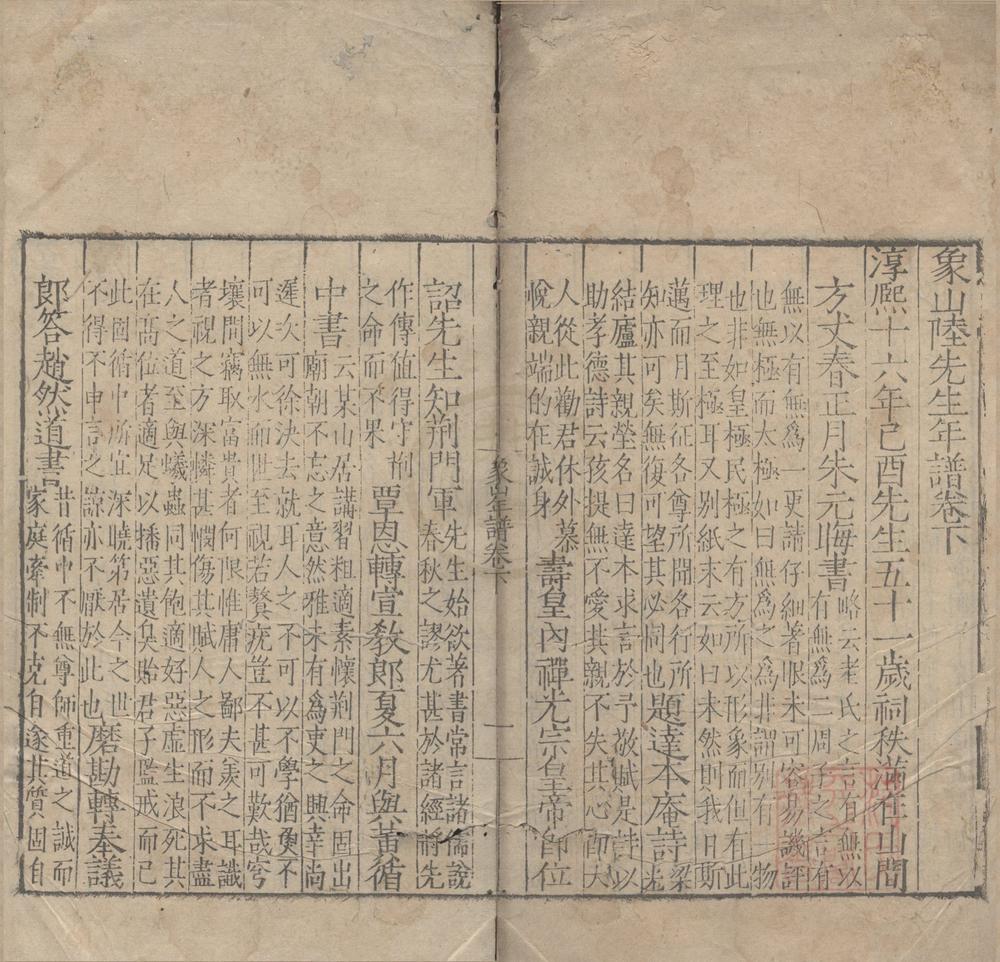 象山陸先生年譜卷下
淳熙十六年己酉先生五十一歲祠秩滿在山間
方丈春正月朱元晦書
略云老氏之言有無以
有無爲二周子之言有
無以有無爲一更請仔細著眼未可容易譏評
也無極而太極如曰無爲之爲非謂別有一物
也非如皇極民極之有方所以形象而但有此
理之至極耳又別紙末云如曰未然則我日斯
邁而月斯征各尊所聞各行所
知亦可矣無復可望其必同也
題達本庵詩
梁
光
結廬其親塋名曰達本求言於予敬賦是詩以
助孝德詩云孩提無不愛其親不失其心卽大
人從此勸君休外慕
悅親端的在誠身
壽皇內禪光宗皇帝卽位
象山年譜卷下
一
詔先生知荆門軍
先生始欲著書常言諸儒說
春秋之謬尤甚於諸經將先
作傳值得守荆
之命而不果
覃恩轉宣敎郎夏六月與黃循
中書
云某山居講習粗適素懷荆門之命固出
廟朝不忘之意然雅未有爲吏之興幸尚
遲次可徐決去就耳人之不可以不學猶魚不
可以無水而世至視若贅疣豈不甚可歎哉穹
壤間竊取富貴者何限惟庸人鄙夫羨之耳識
者視之方深憐甚憫傷其賦人之形而不求盡
人之道至與蟻蟲同其飽適好惡虛生浪死其
在高位者適足以播惡遺臭貽君子監戒而已
此固循中所宜深曉第居今之世
不得不申言之諒亦不厭於此也
磨勘轉奉議
郎答趙然道書
昔循中不無尊師重道之誠而
家庭牽制不克自遂其質固自